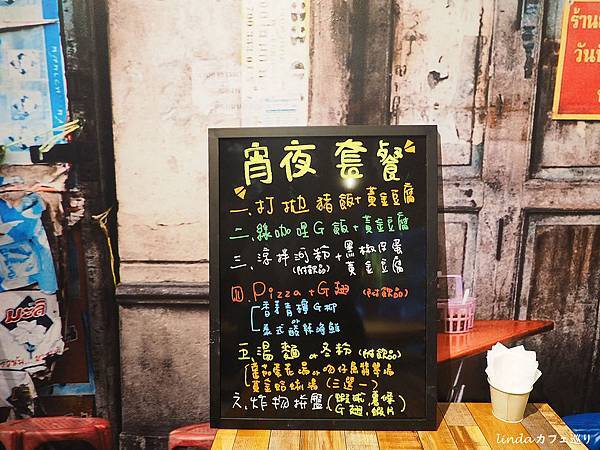 宵夜套餐
一、打拋豬飯+黃金豆腐
二、綠咖哩G飯+黃金豆腐
三、涼拌河粉+黑椒仔蛋
(附飲品) 黃金豆腐
四、Pizza+G翅(附飲品)
香青檸G柳
泰式酸辣海鮮
五、湯麵or冬粉(附飲品)
黃金蛤蜊湯(三選一)
六、炸物拼盤(蝦球、薯條
G翅、蝦片)
ร้าน
วัน
lindaカフェ巡り